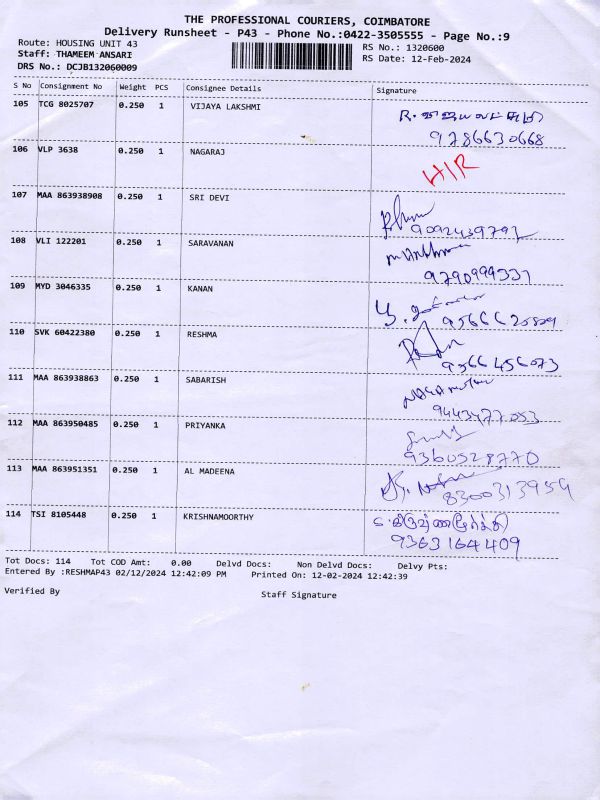 THE PROFESSIONAL COURIERS, COIMBATORE
Delivery Runsheet - P43 - Phone No.:0422-3505555 - Page No.:9
Route: HOUSING UNIT 43 RS No.: 1320600
Staff: THAMEEM ANSARI RS Date: 12-Feb-2024
DRS No.: DCJB132060009
S No Consignment No Weight PCS Consignee Details Signature
105 TCG 8025707 0.250 1 VIJAYA LAKSHMI
9786630668
106 VLP 3638 0.250 1 NAGARAJ
H/R
107 MAA 863938908 0.250 1 SRI DEVI
108 VLI 122201 0.250 1 SARAVANAN
9790999331
109 MYD 3046335 0.250 1 KANAN
110 SVK 60422380 0.250 1 RESHMA
9566456073
111 MAA 863938863 0.250 1 SABARISH
9443477053
112 MAA 863950485 0.250 1 PRIYANKA
9360528770
113 MAA 863951351 0.250 1 AL MADEENA
8300313959
114 TSI 8105448 0.250 1 KRISHNAMOORTHY
9363164409
Tot Docs: 114 Tot COD Amt: 0.00 Delvd Docs: Non Delvd Docs: Delvy Pts:
Entered By :RESHMAP43 02/12/2024 12:42:09 PM Printed On: 12-02-2024 12:42:39
Verified By Staff Signature